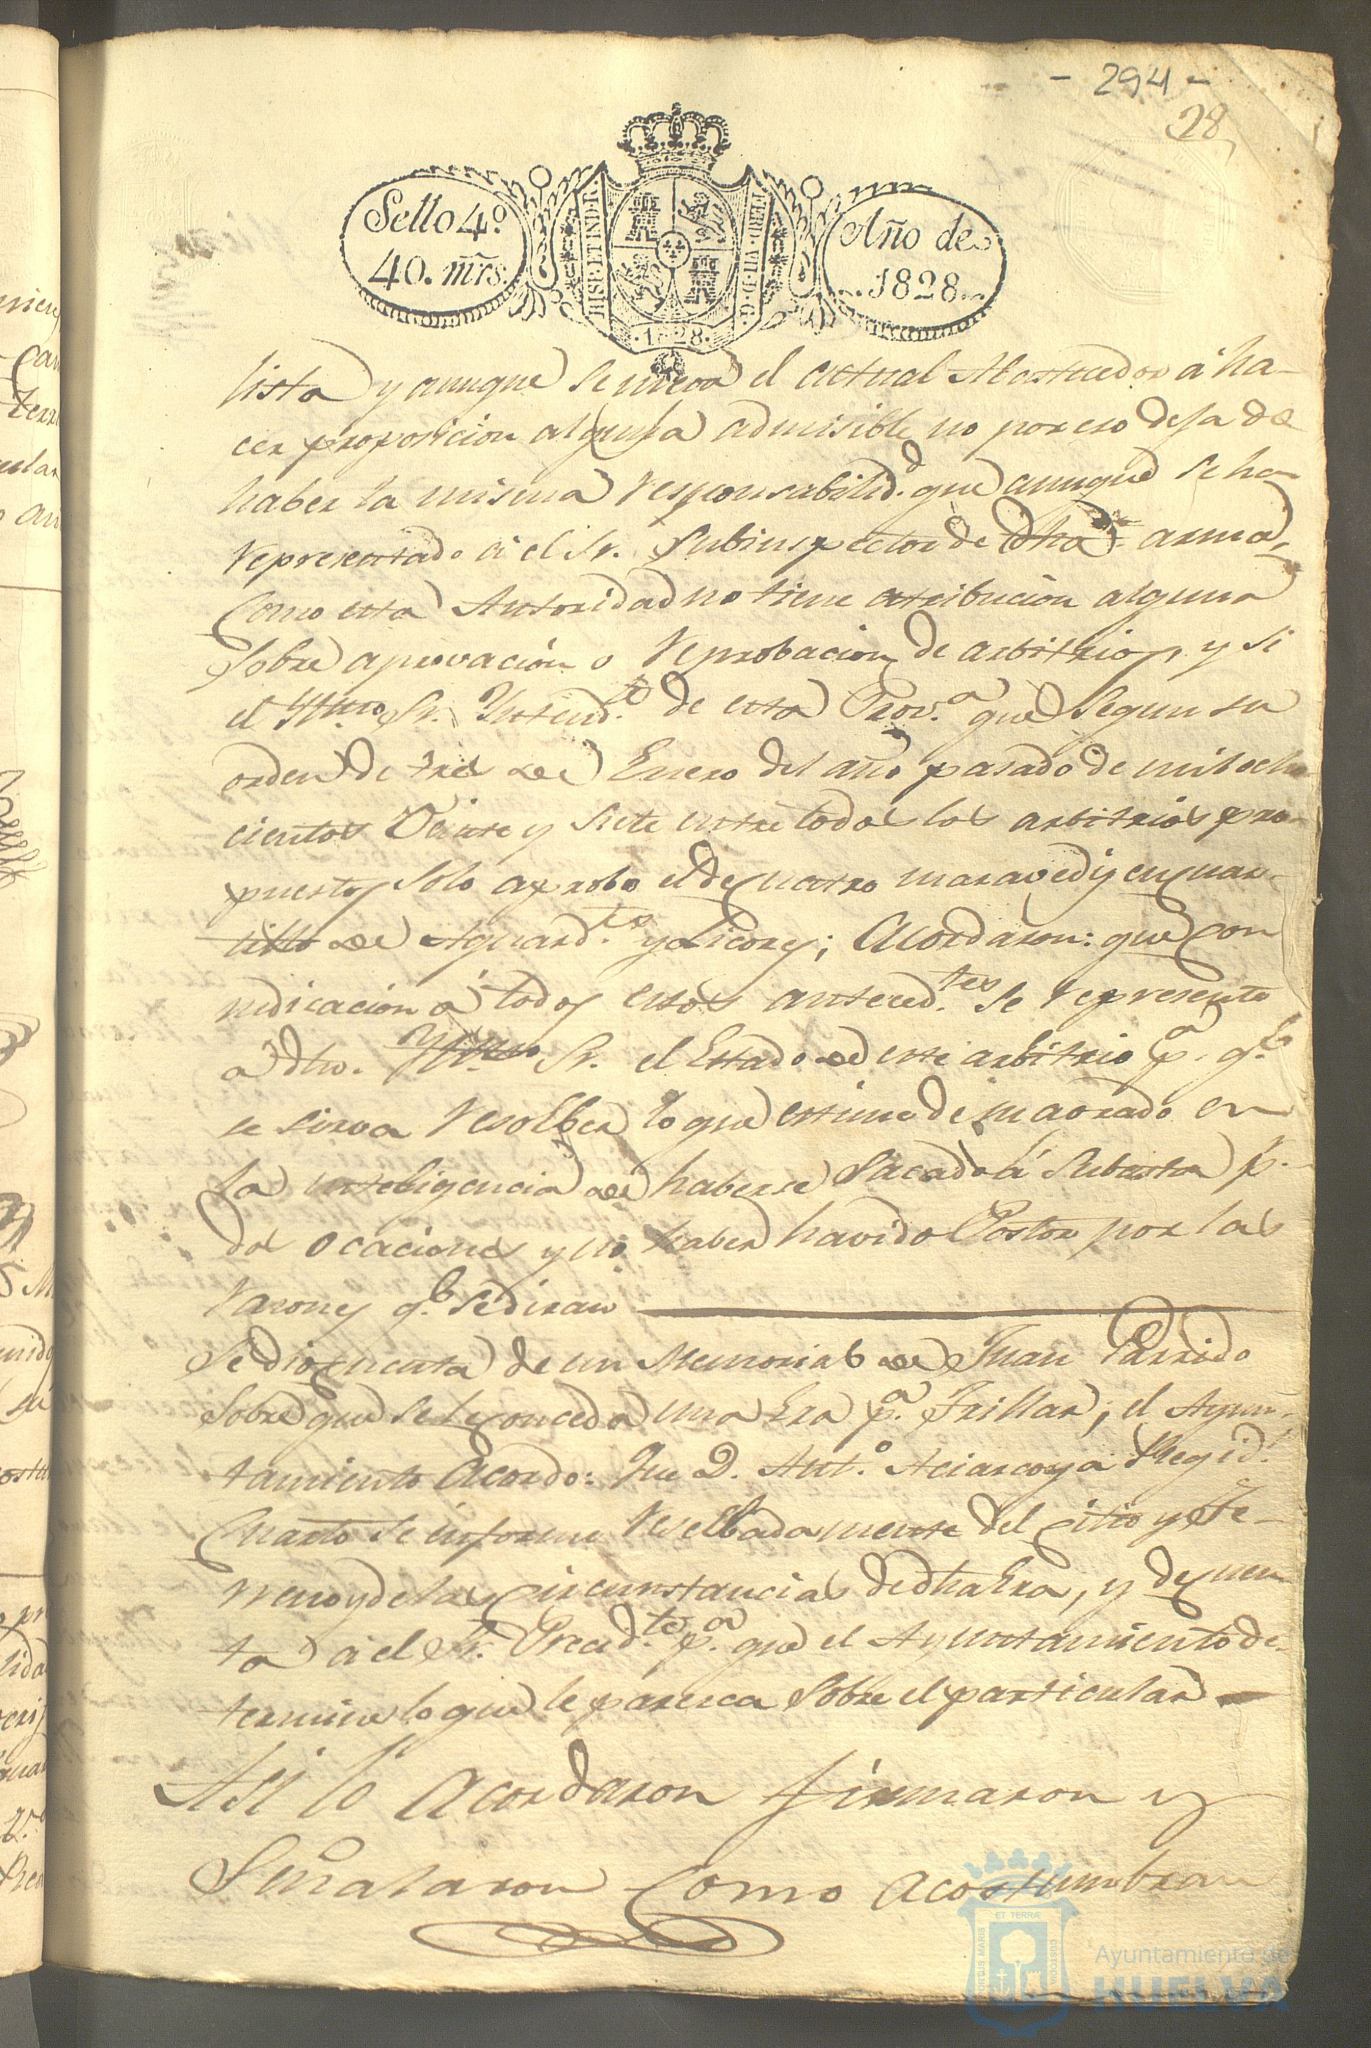 - 294 -
28
Sello 4º
40. mrs.
HISP. ET IND. R.
FERD. VII. D. G.
· 1828 ·
Año de
1828
lista y aunque se mera el actual Alostucedor á ha-
cer proposicion alguna admisible no por eso deja de
haber la misma responsabilid.d que aunque se ha
representado á el Sr. Subinspector de dha arma,
como esta Autoridad no tiene atribucion alguna
sobre aprovación o reprobacion de arbitrios, y si
el Yltmo. Sr. Yntend.te de esta Prov.a que segun su
orden de tres de Enero del año pasado de mil ocho
cientos Veinte y siete entre todos los arbitrios pro-
puestos solo aprobo el de cuatro maravedis en cuar-
tillo de Aguard.tes y Licores; Acordaron: que con
indicacion á todos estos anteced.tes se represente
a dho. Yltmo. Sr. el Estado de este arbitrio p.a q.e
se sirva resolber lo que estime de su agrado en
la inteligencia de haberse sacado á Subasta p.
dos ocaciones y no haber havido Postor por las
razones q.e se diran
Se dio cuenta de un Memorial de Juan Garrido
sobre que se le conceda una Era p.a Trillar; el Ayun-
tamiento Acordo: Que D. Ant.o Aciarcoya Regid.r
Cuarto se informe reselbadamente del citio y te-
rreno y de las circunstancias de dha Era, y de cuen
ta á el Sr. Presid.te p.a que el Ayuntamiento de-
termine lo que le paresca sobre el particular
Asi lo acordaron firmaron y
Señalaron como acostumbran
Ayuntamiento de
HUELVA